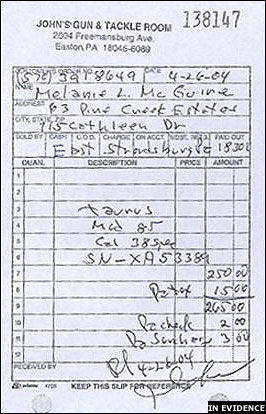 138147
JOHN'S GUN & TACKLE ROOM
2604 Freemansburg Ave.
Easton, PA 18045-6069
DATE 4-26-04
NAME Melanie L. McGuire
ADDRESS 83 Pine Creek Estates
CITY, STATE, ZIP 715 Cathleen Dr
SOLD BY CASH C.O.D. CHARGE ON ACCT. MDSE. RETD. PAID OUT
East Stroudsburg Pa 18301
QUAN. DESCRIPTION PRICE AMOUNT
1
2
3 taurus
4 Mod 85
5 Cal 38 Spec
6 SN-XA53389
7 250 00
8 Pa tax 15 00
9 265 00
10 Pa check 2 00
11 Pa Surchar 3 00
12 Pd 4-26-04
RECEIVED BY
adams 4705 KEEP THIS SLIP FOR REFERENCE
IN EVIDENCE